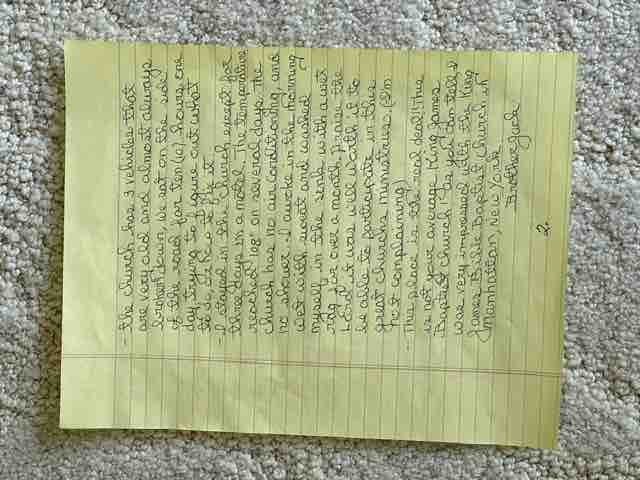 - The church has 3 vehicles that
are very old and almost always
broken down, we sat on the side
of the road for ten (10) hours one
day trying to figure out what
to do or how to fix it.
- I stayed in the church except for
three days in a motel. The temperature
reached 108° on several days. The
church has no air conditioning, and
no shower. I awoke in the morning
wet with sweat and washed
myself in the sink with a wet
rag for over a month. Praise the
Lord it was well worth it to
be able to participate in this
great churches ministries. (I'm
not complaining)
- This place is the real deal! This
is not your average King James
Baptist church! As you can tell I
was very impressed with the King
James Bible Baptist church in
Manhattan, New York.
Brother Jude
2.